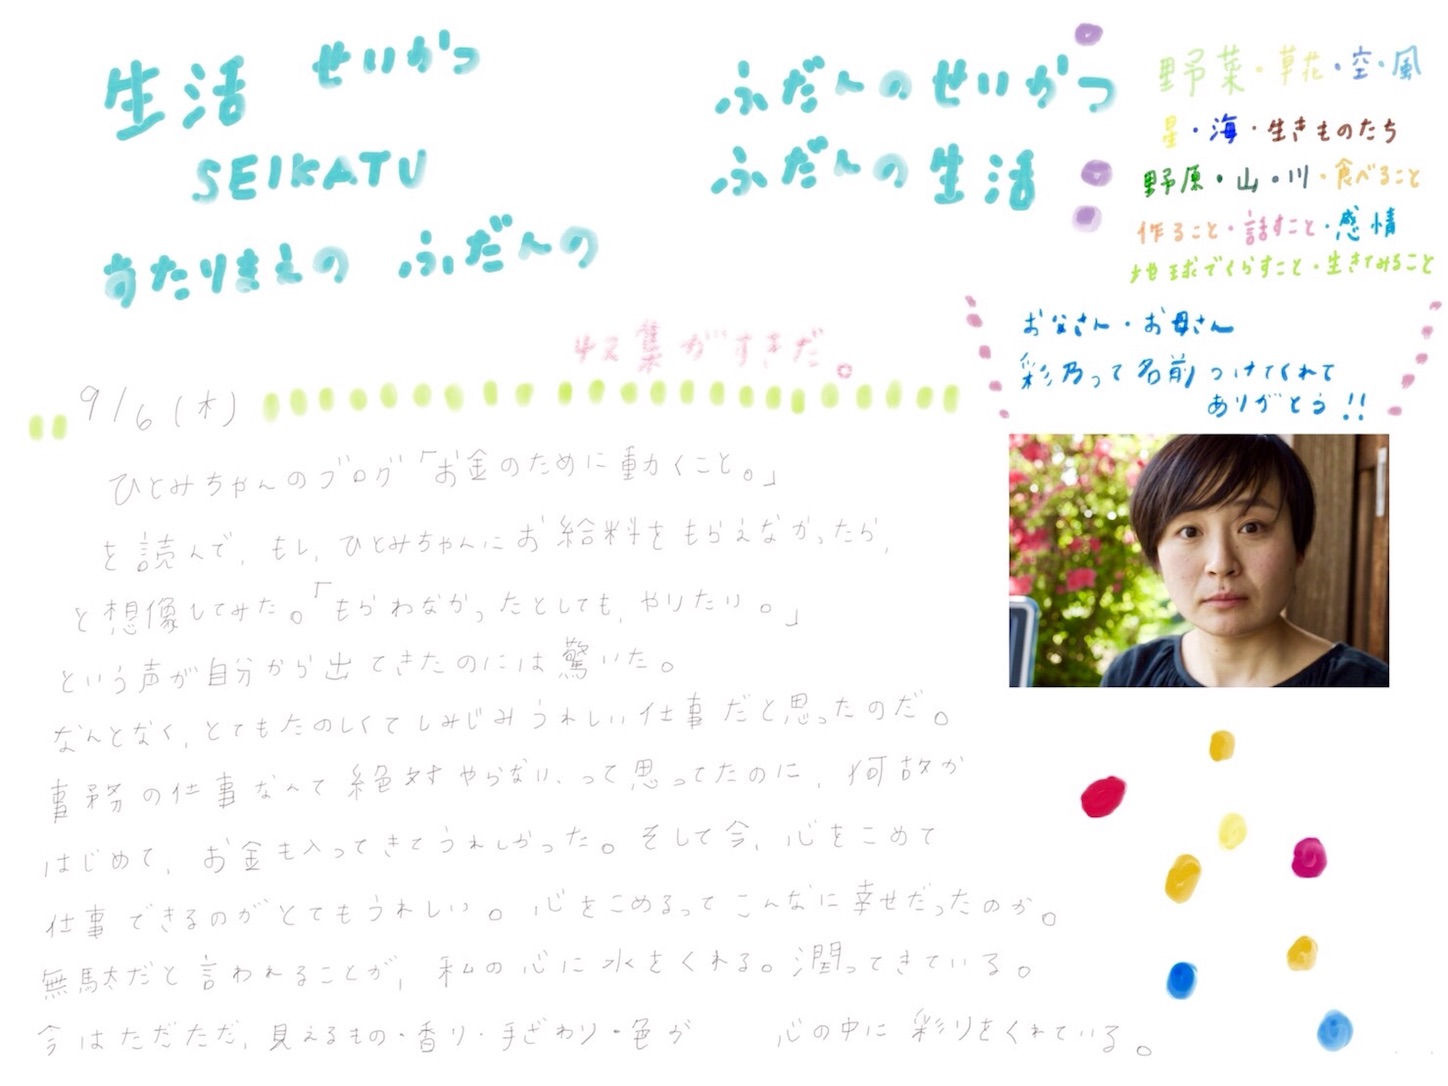 生活 せいかつ
SEIKATU
すたりまえの ふだんの
ふだんのせいかつ
ふだんの生活
野菜・草花・空・風
星・海・生きものたち
野原・山・川・食べること
作ること・話すこと・感情
地球でくらすこと・生きてみること
収集がすきだ。
お父さん・お母さん
彩乃って名前つけてくれて
ありがとう!!
9/6(木)
ひとみちゃんのブログ「お金のために動くこと。」
を読んで、もし、ひとみちゃんにお給料をもらえなかったら、
と想像してみた。「もらわなかったとしても、やりたい。」
という声が自分から出てきたのには驚いた。
なんとなく、とてもたのしくてしみじみうれしい仕事だと思ったのだ。
事務の仕事なんて絶対やらない、って思ってたのに、何故か
はじめて、お金も入ってきてうれしかった。そして今、心をこめて
仕事できるのがとてもうれしい。心をこめるってこんなに幸せだったのか。
無駄だと言われることが、私の心に水をくれる。潤ってきている。
今はただただ、見えるもの・香り・手ざわり・色が 心の中に彩りをくれている。